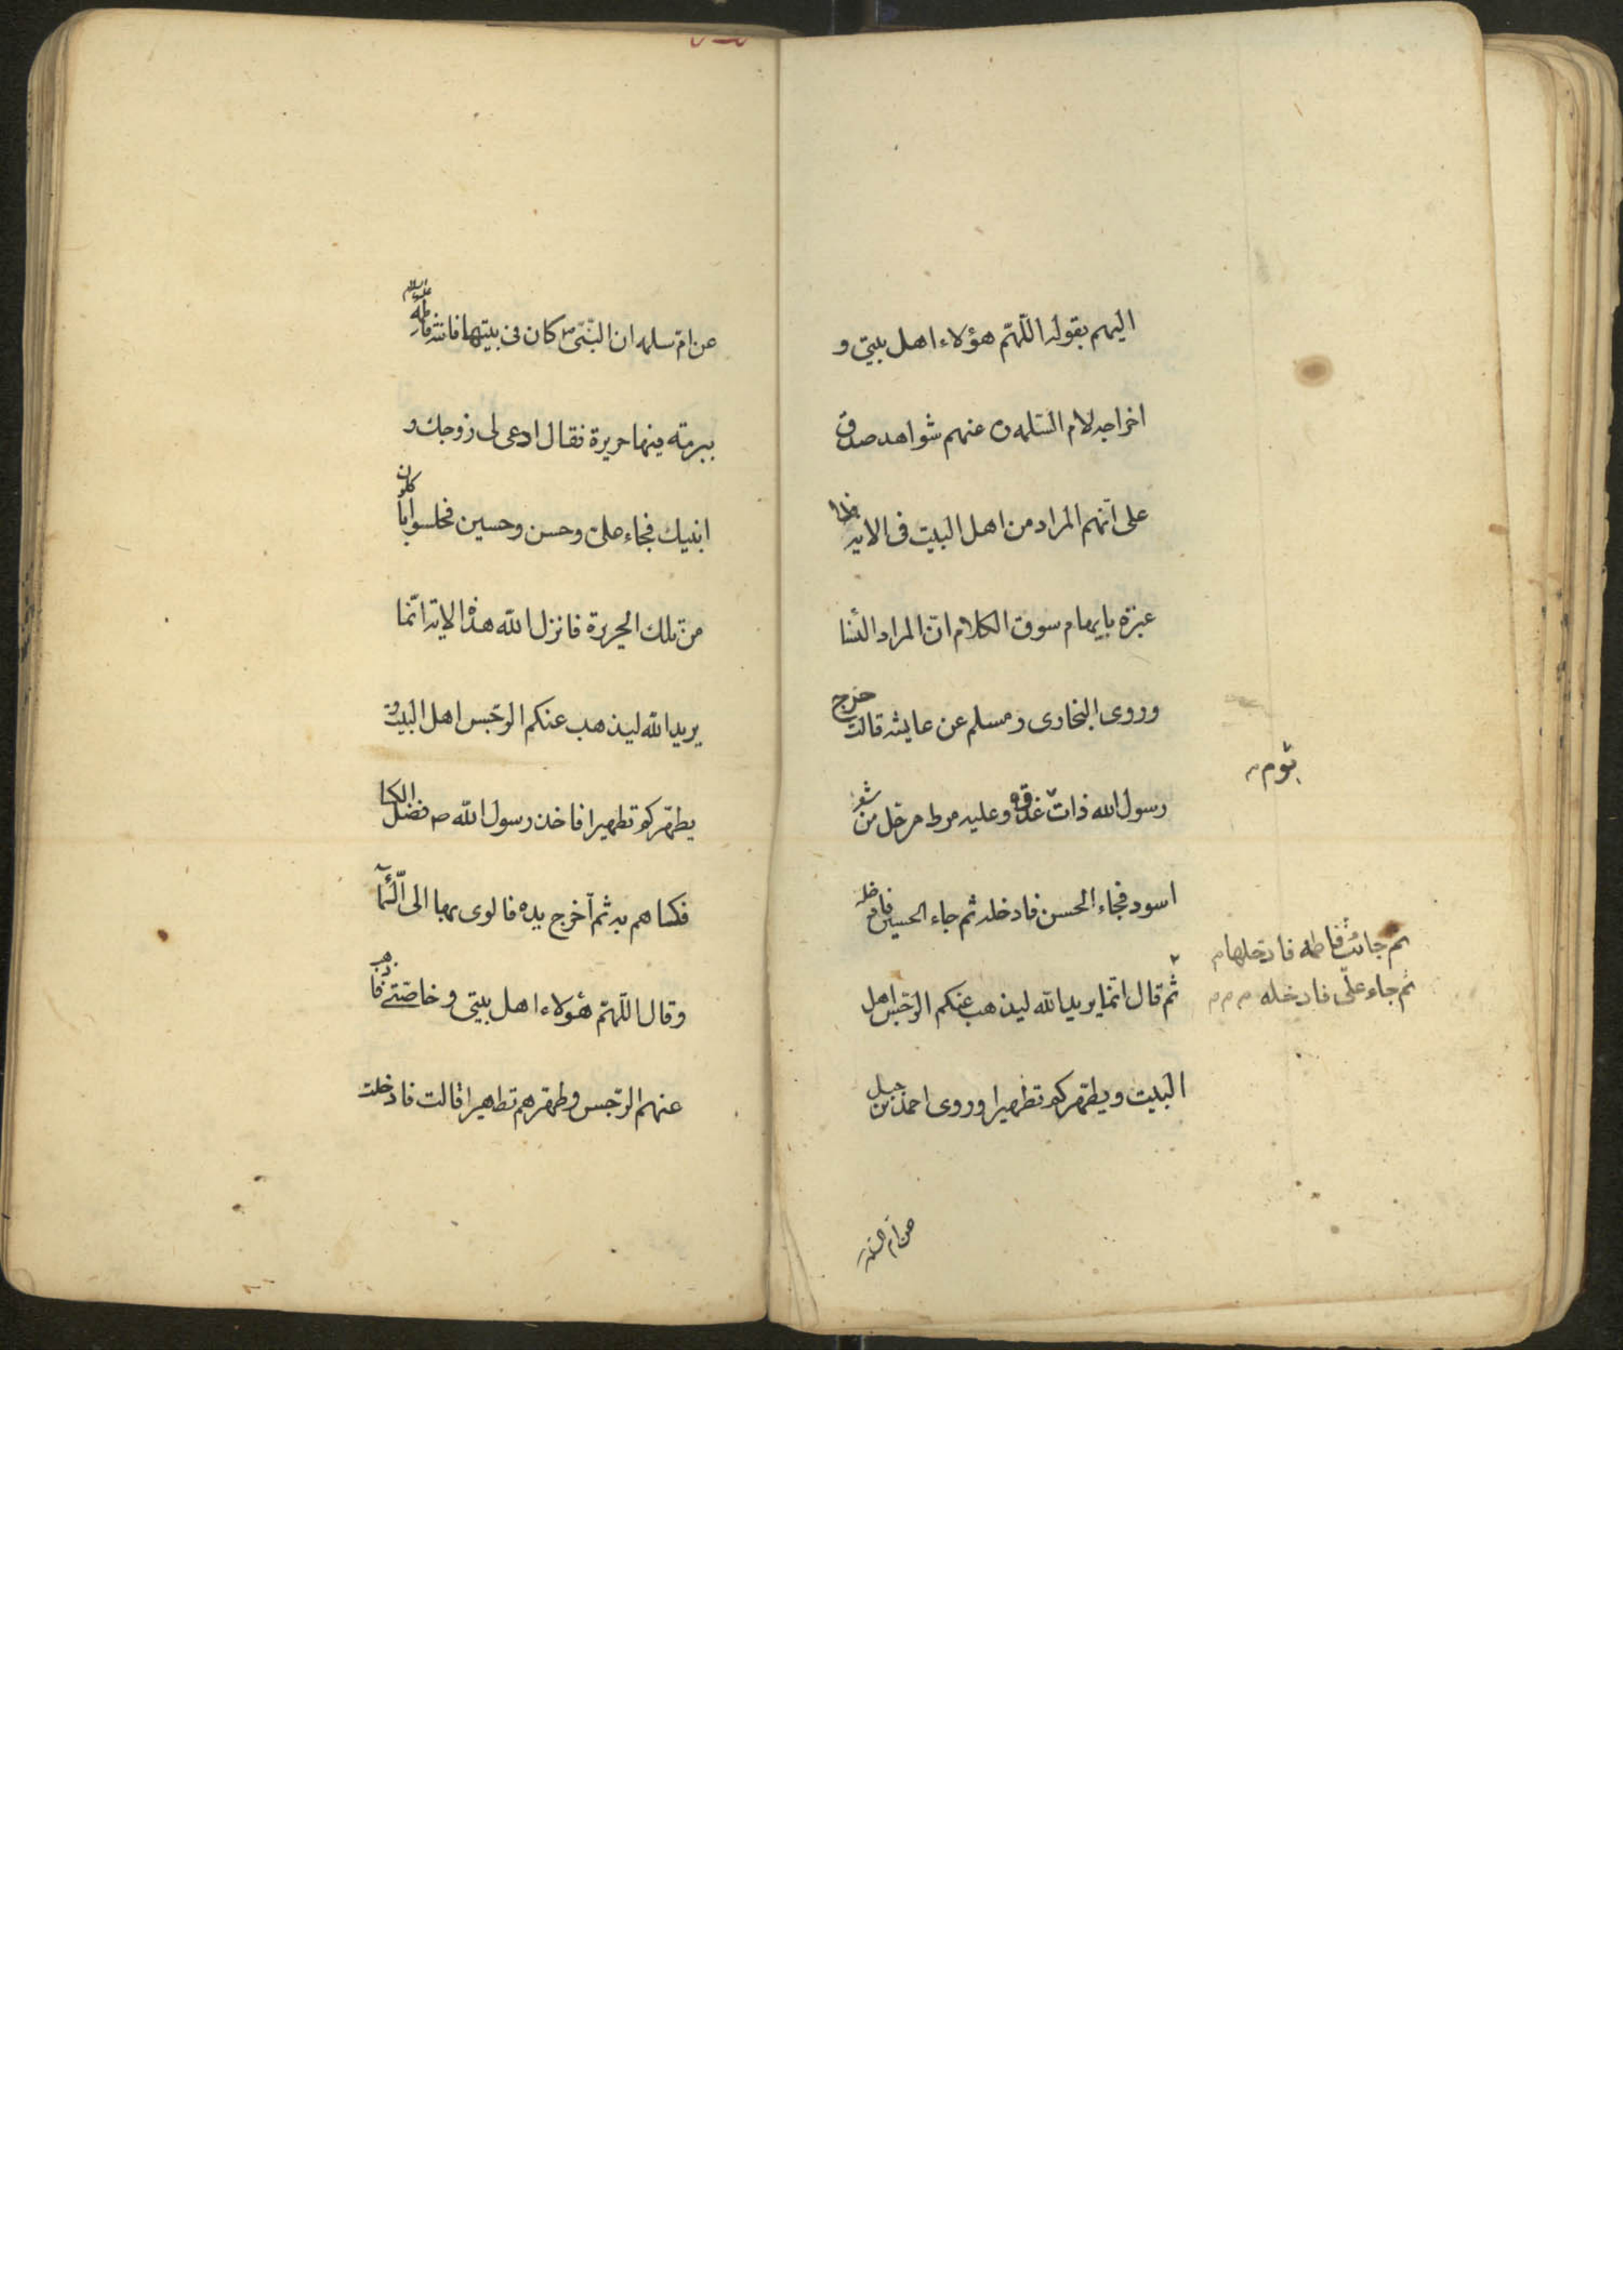 اليهم بقوله اللّهمّ هؤلاء اهل بيتى و
اخراجه لام السّلمه عنهم شواهد صدق
على انّهم المراد من اهل البيت فى الايه
عبرة بايهام سوق الكلام انّ المراد النّسا
وروى البخارى ومسلم عن عايشه قالت خرج
رسول الله ذات غدوة وعليه مرط مرحّل من شعر
اسود فجاء الحسن فادخله ثم جاء الحسين فادخله
ثم قال انّما يريد الله ليذهب عنكم الرّجس اهل
البيت ويطهّركم تطهيرا وروى احمد بن حنبل
يوم
ثم جائت فاطمه فادخلها م
ثم جاء علىّ فادخله م م م
عن ام السلمه
عن امّ سلمه ان النّبىّ ص كان فى بيتها فاتته فاطمة عليها السلام
ببرمته فيها حريرة فقال ادعى لى زوجك و
ابنيك فجاء علىّ وحسن وحسين فجلسوا ياكلون
من تلك الحريرة فانزل الله هذه الاية انّما
يريد الله ليذهب عنكم الرّجس اهل البيت و
يطهّركم تطهيرا فاخذ رسول الله ص فضل الكسا
فكساهم به ثم اخرج يده فالوى بها الى السّماء
وقال اللّهمّ هؤلاء اهل بيتى و خاصّتى فاذهب
عنهم الرّجس وطهّرهم تطهيرا قالت فادخلت